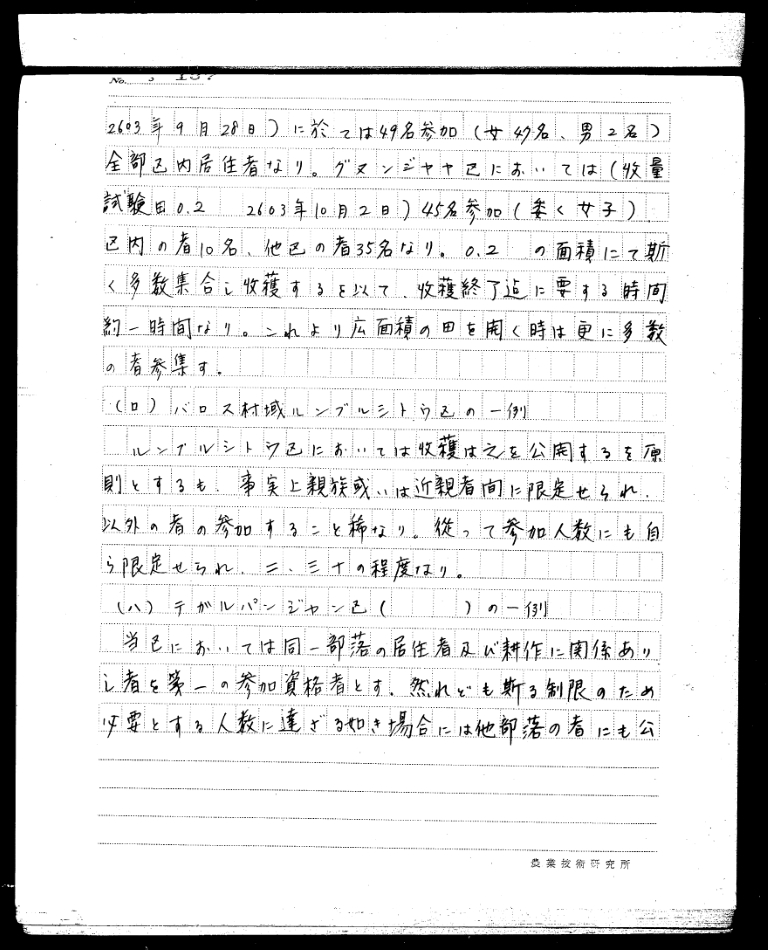 No. 3 137
2603年9月28日)に於ては49名参加(女47名、男2名)
全部区内居住者なり。グヌンジャヤ区においては(收量
試験田0.2 2603年10月2日)45名参加(悉く女子)
区内の者10名、他区の者35名なり。0.2 の面積にて斯
く多数集合し收穫するを以て、收穫終了迄に要する時間
約一時間なり。これより広面積の田を開く時は更に多数
の者参集す。
(ロ)バロス村域ルンブルシトウ区の一例
ルンブルシトウ区においては收穫は之を公開するを原
則とするも、事実上親族或いは近親者間に限定せられ、
以外の者の参加すること稀なり。從って参加人数にも自
ら限定せられ、二、三十の程度なり。
(ハ)テガルパンジャン区( )の一例
当区においては同一部落の居住者及び耕作に関係あり
し者を第一の参加資格者とす、然れども斯る制限のため
必要とする人数に達ざる如き場合には他部落の者にも公
農業技術研究所